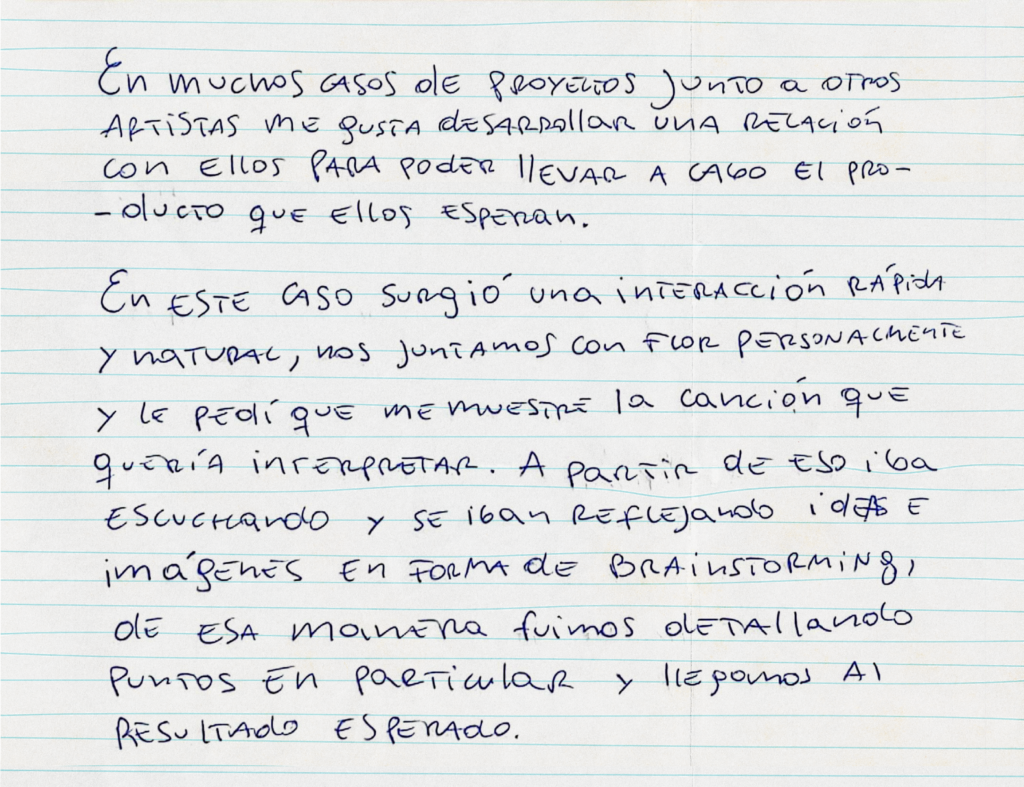 En muchos casos de proyectos junto a otros
artistas me gusta desarrollar una relación
con ellos para poder llevar a cabo el pro-
-ducto que ellos esperan.
En este caso surgió una interacción rápida
y natural, nos juntamos con Flor personalmente
y le pedí que me muestre la canción que
quería interpretar. A partir de eso iba
escuchando y se iban reflejando ideas e
imágenes en forma de brainstorming,
de esa manera fuimos detallando
puntos en particular y llegamos al
resultado esperado.